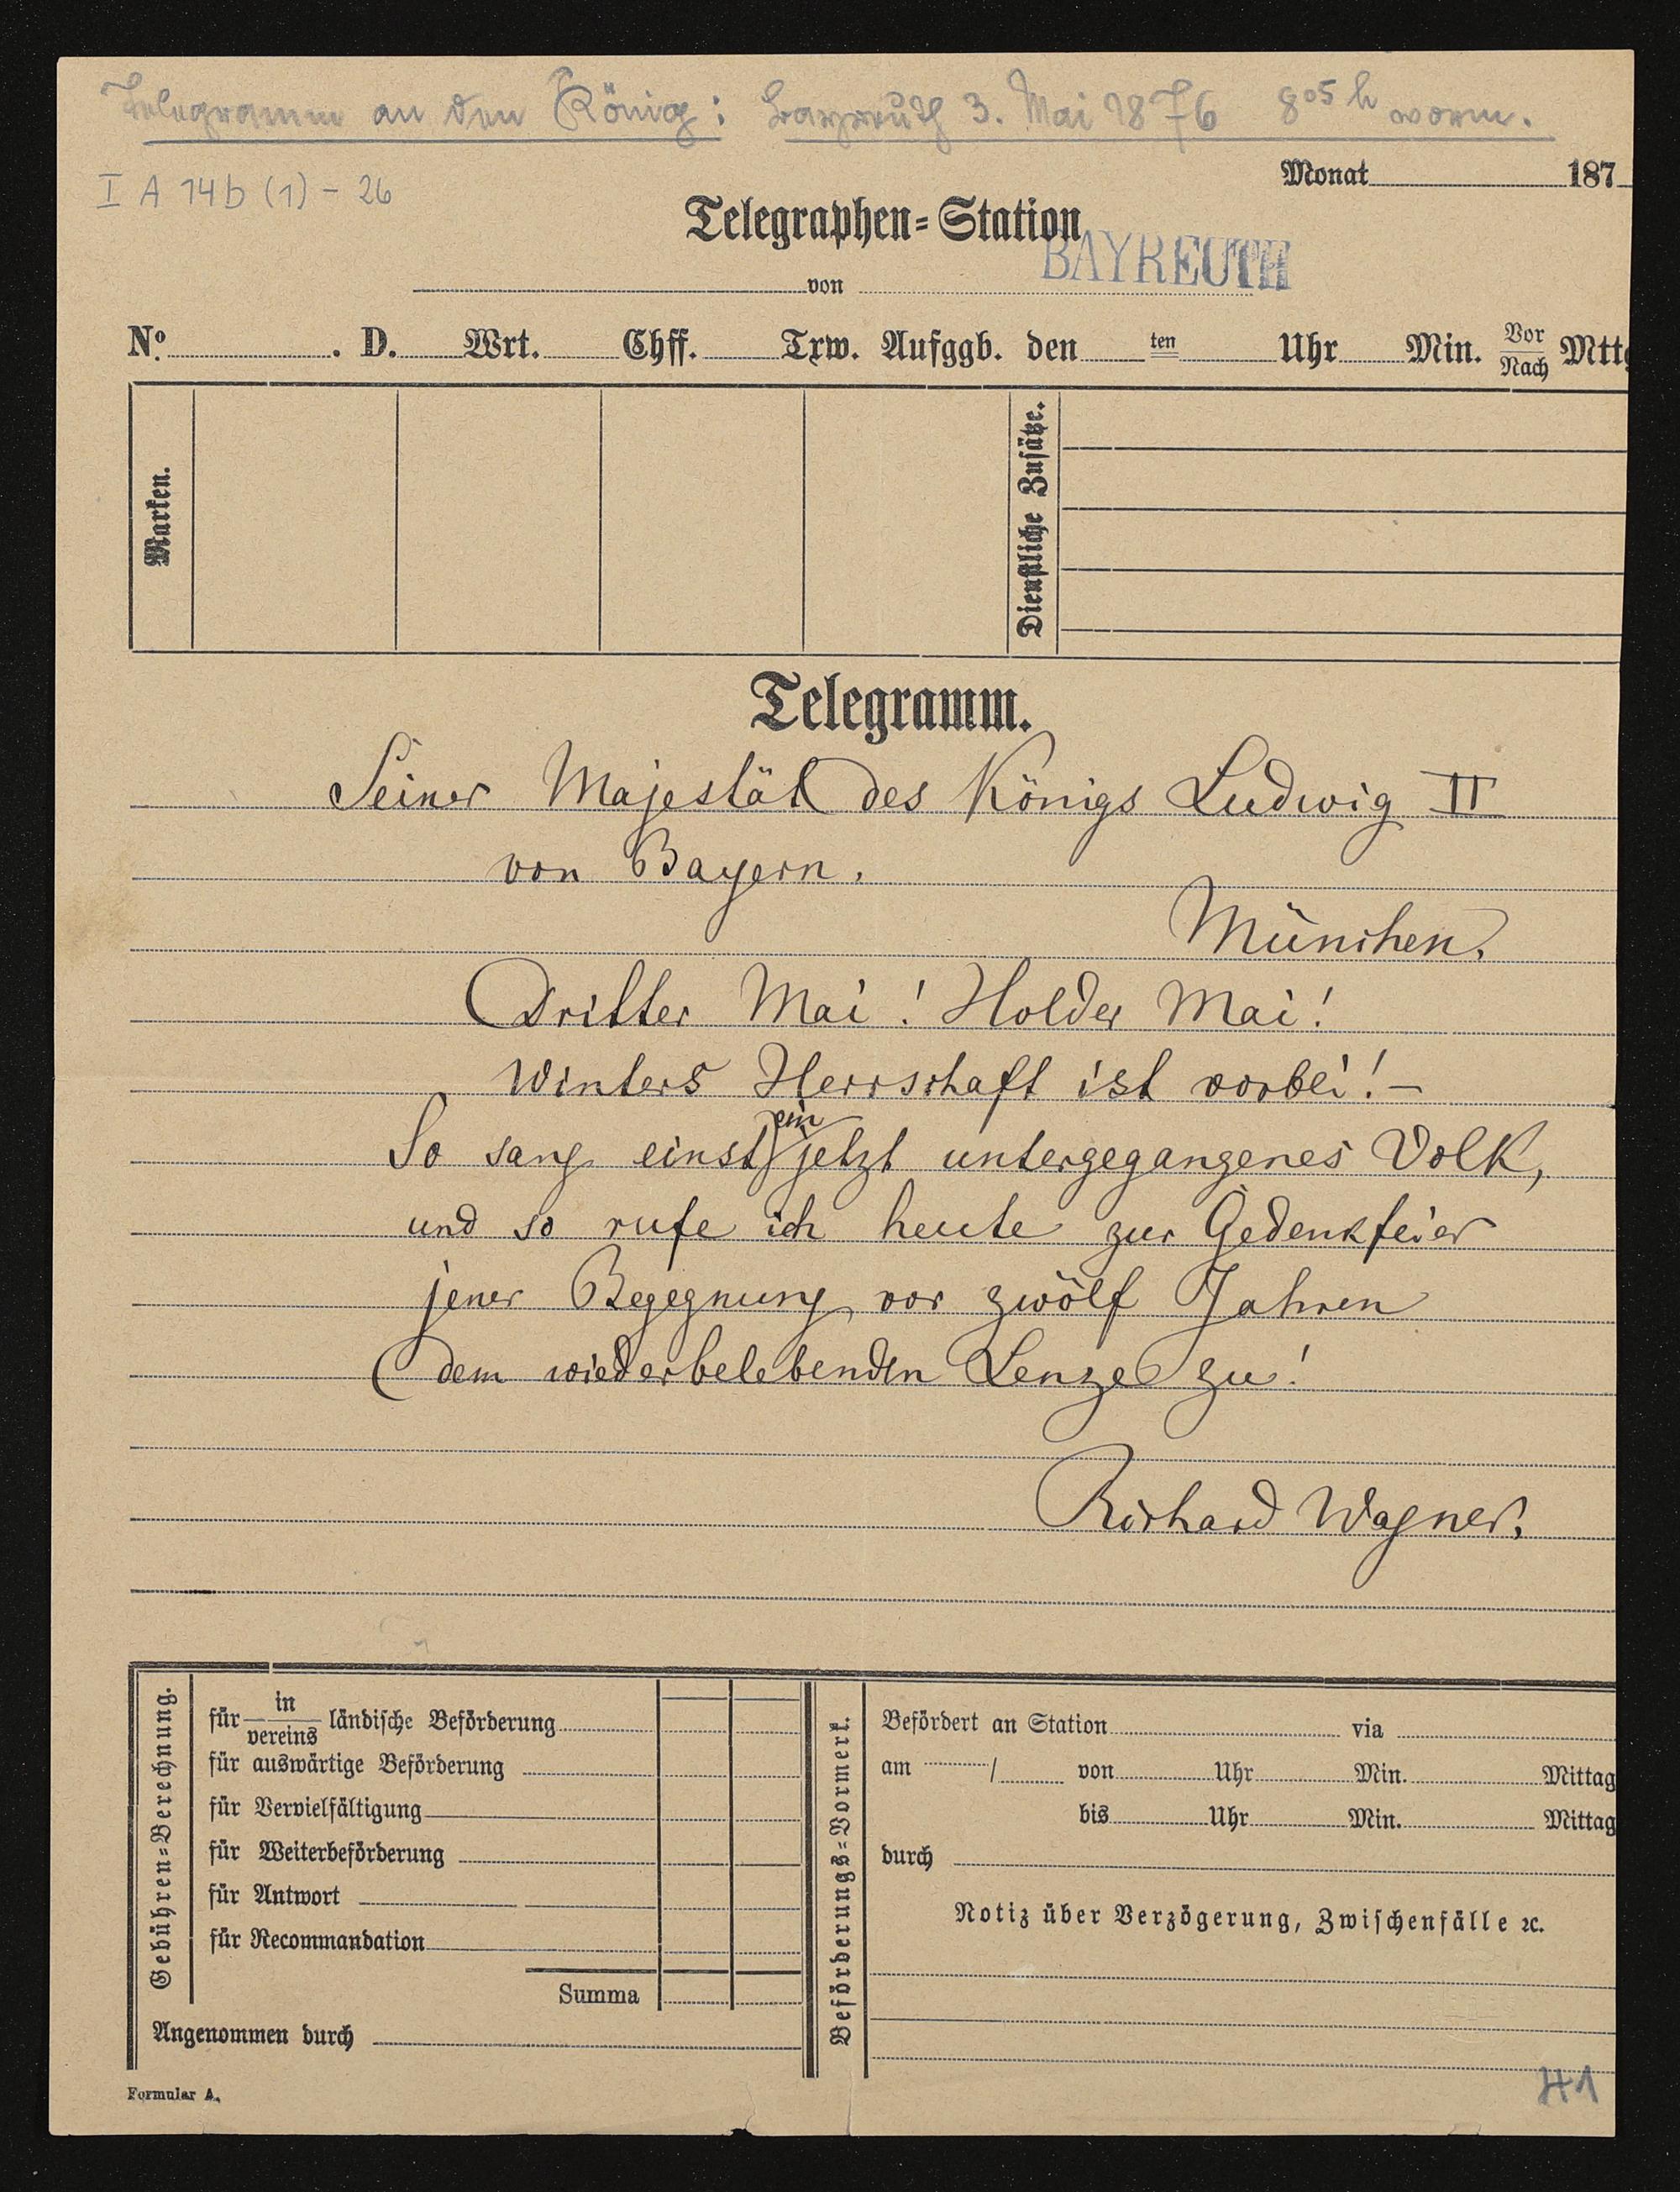 Telegramm an den König: Bayreuth 3. Mai 1876 8⁰⁵ h vorm.
I A 14b (1) - 26
Monat 187
Telegraphen=Station
BAYREUTH
von
Nº. . D. Wrt. Chff. Txw. Aufggb. den ten Uhr Min. Vor Nach Mttg
Marken.
Dienstliche Zusätze.
Telegramm.
Seiner Majestät des Königs Ludwig II
von Bayern.
München.
Dritter Mai! Holder Mai!
Winters Herrschaft ist vorbei! –
So sang einst ein jetzt untergegangenes Volk,
und so rufe ich heute zur Gedenkfeier
jener Begegnung vor zwölf Jahren
dem wiederbelebenden Lenze zu!
Richard Wagner.
Gebühren=Berechnung.
für in vereins ländische Beförderung
für auswärtige Beförderung
für Vervielfältigung
für Weiterbeförderung
für Antwort
für Recommandation
Summa
Angenommen durch
Beförderungs=Vormerk.
Befördert an Station via
am / von Uhr Min. Mittag
bis Uhr Min. Mittag
durch
Notiz über Verzögerung, Zwischenfälle ꝛc.
Formular A.
H1